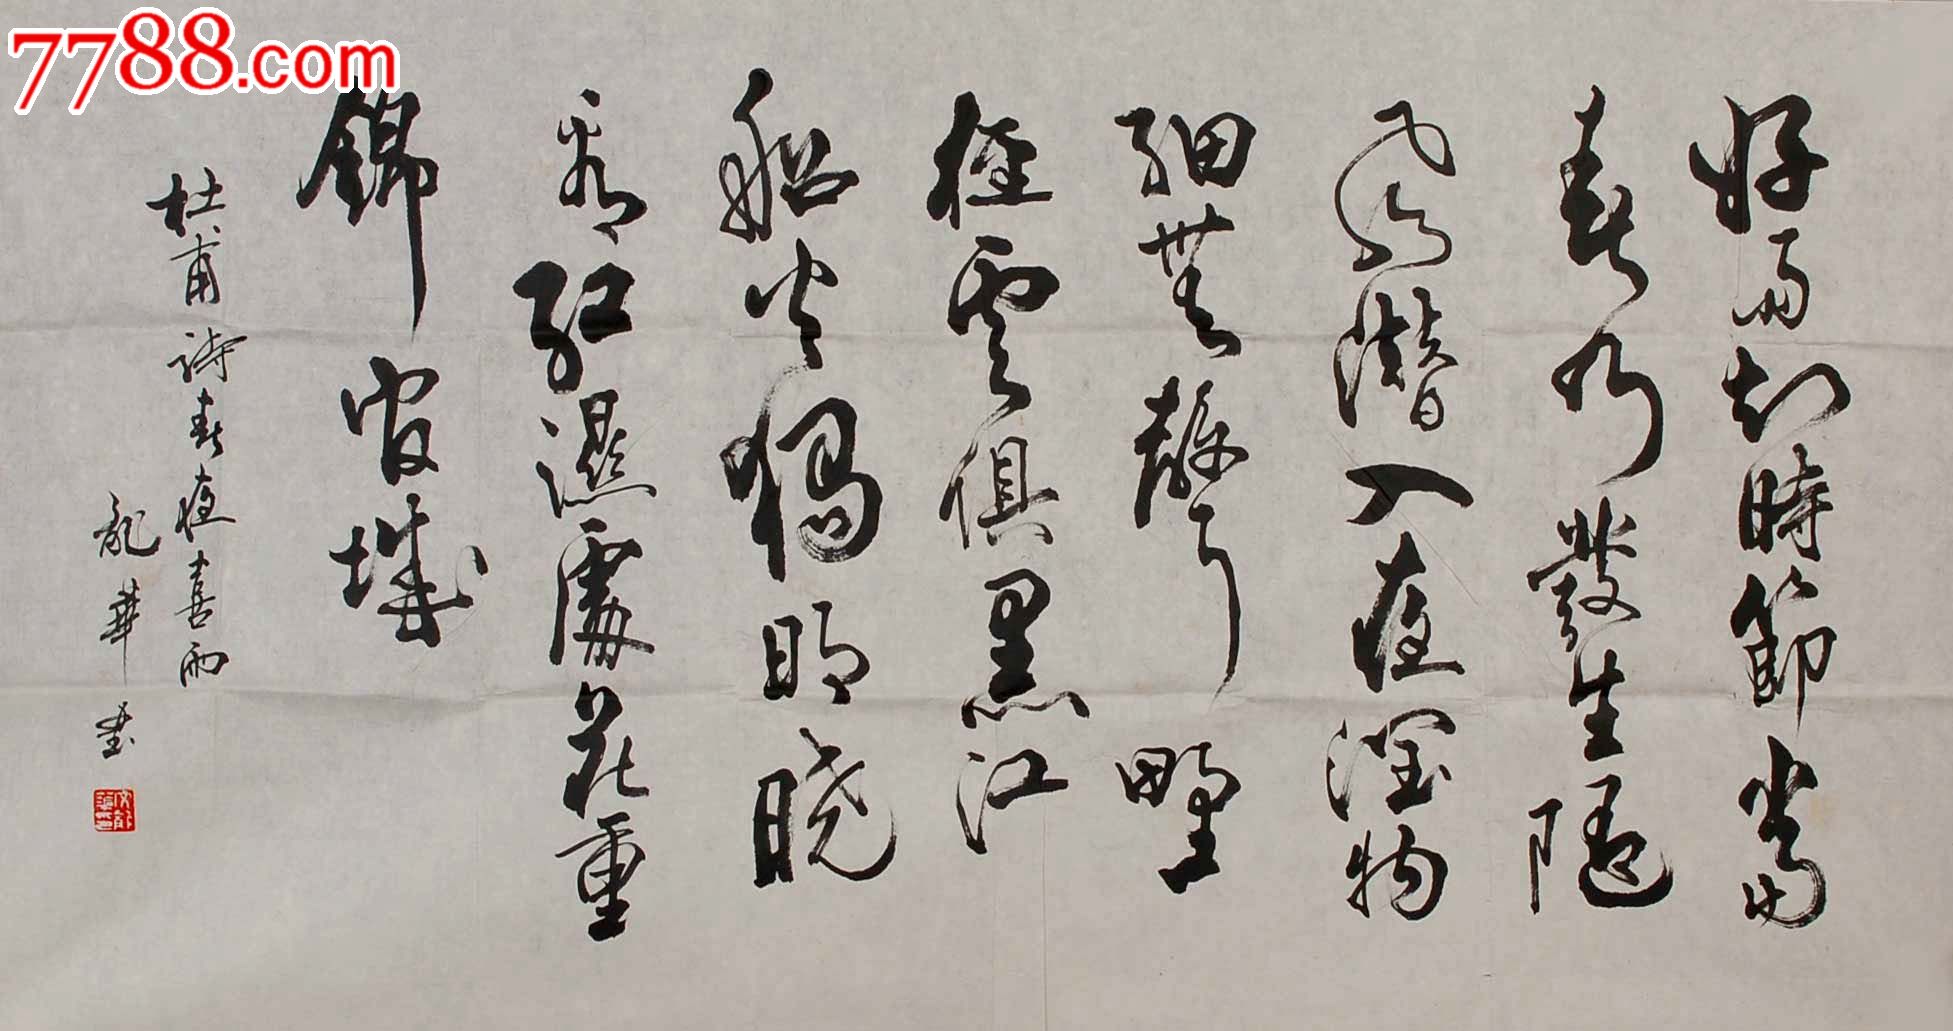 7788.com
好雨知時節當
春乃發生隨
風潛入夜潤物
細無聲野
徑雲俱黑江
船火獨明曉
看紅濕處花重
錦官城
杜甫詩春夜喜雨
龍華書